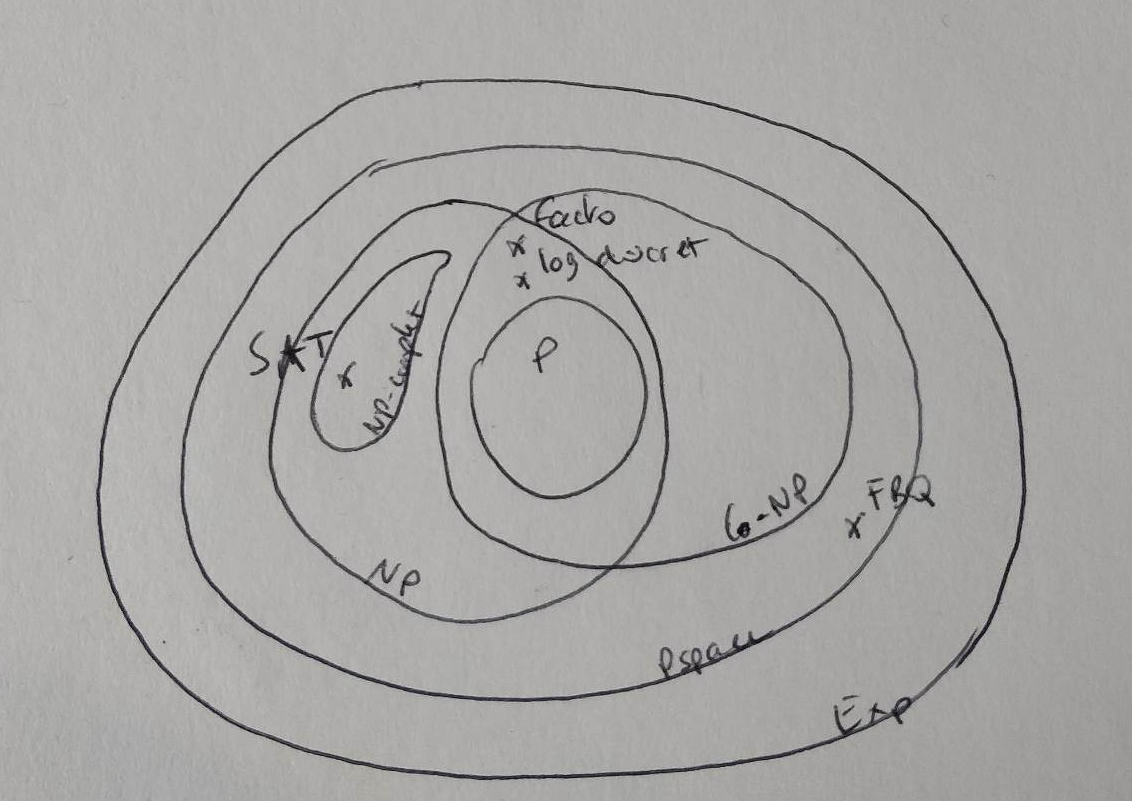 Facto
log discret
SAT
P
NP-complet
FBQ
Co-NP
NP
Pspace
Exp